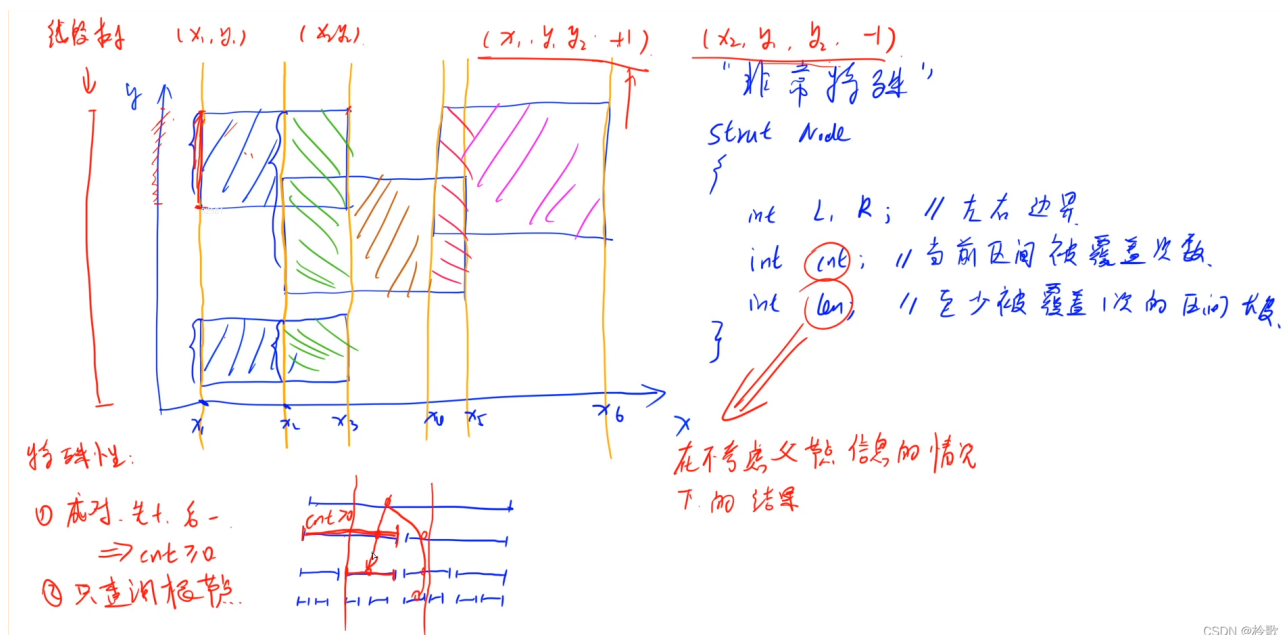 线段树 (x₁, y₁) (x₂ y₂) (x₁, y₁ y₂ +1) (x₂, y₁, y₂, -1)
"非常特殊"
y
Strut Node
{
int L, R; // 左右边界
int cnt; // 当前区间被覆盖次数.
int len; // 至少被覆盖1次的区间长度.
}
x₁ x₂ x₃ x₄ x₅ x₆ x
特殊性:
在不考虑父节点信息的情况
下的结果
① 成对. 先+, 后-.
⇒ cnt ≥ 0
② 只查询根节点.
cnt>0
CSDN @柃歌